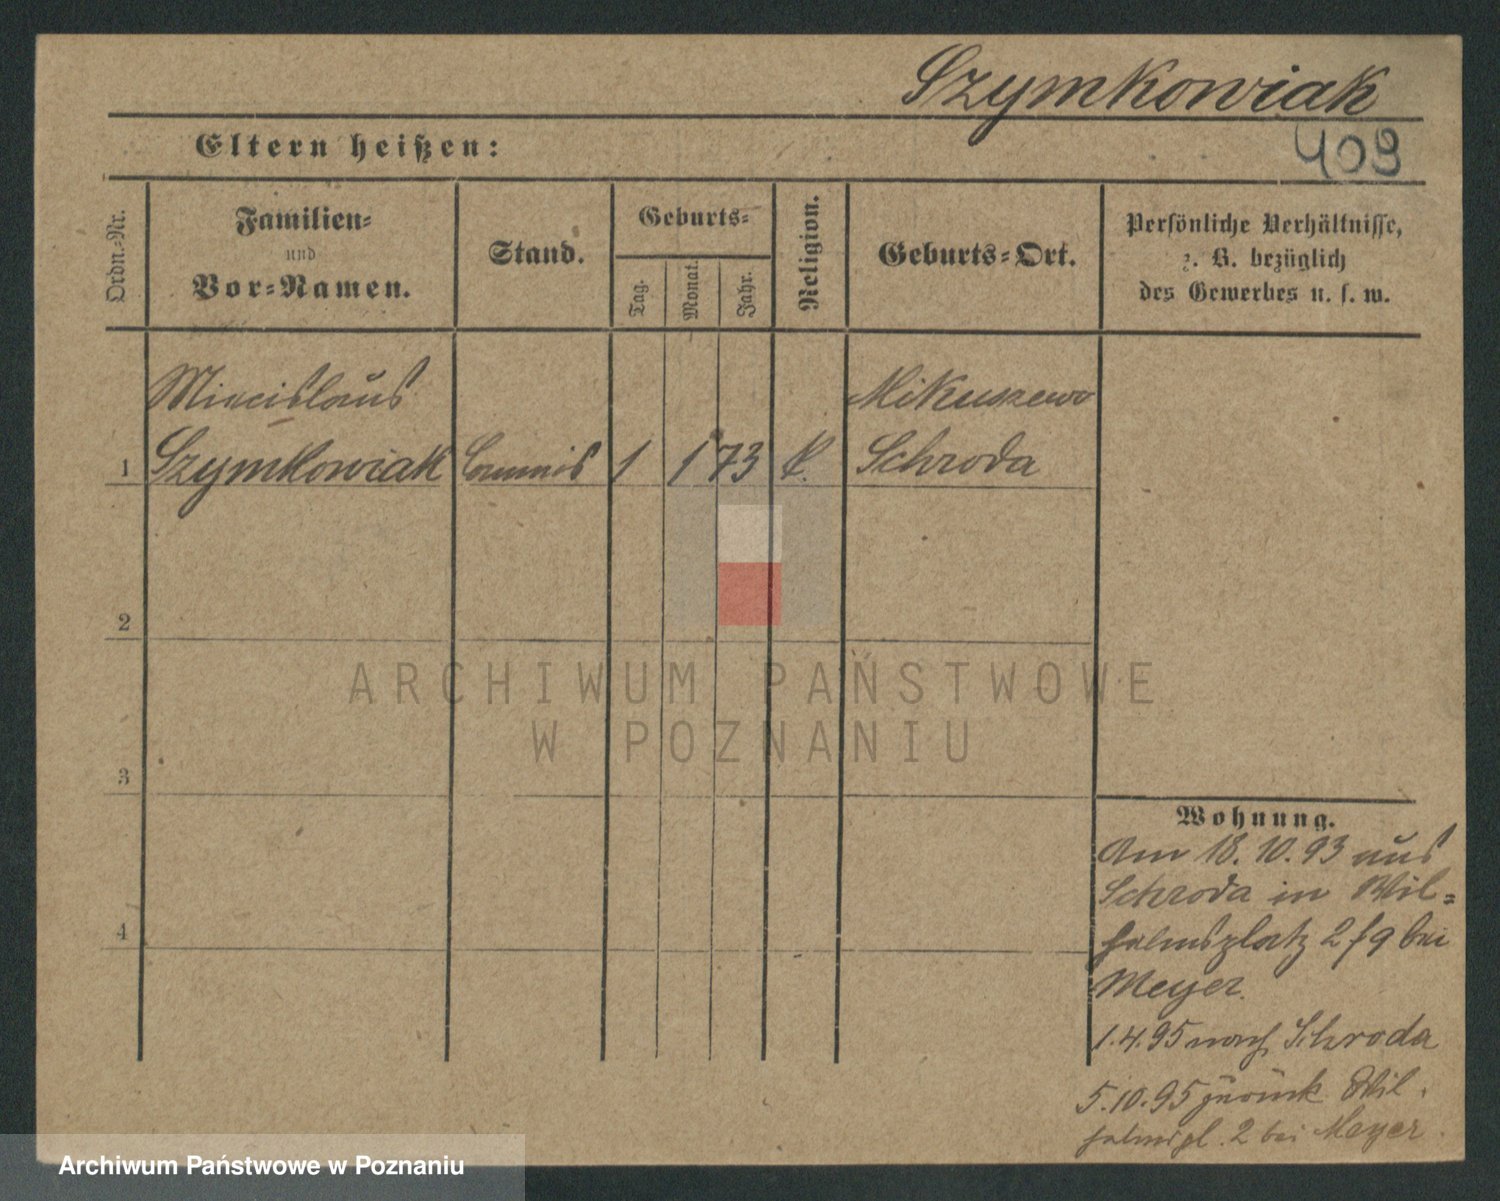 Szymkowiak
409
Eltern heißen:
Ordn.-Nr.
Familien-
und
Vor-Namen.
Stand.
Geburts-
Tag.
Monat.
Jahr.
Religion.
Geburts-Ort.
Persönliche Verhältnisse,
z. B. bezüglich
des Gewerbes u. s. w.
Miecislaus
Mikuszewo
1 Szymkowiak Commis 1 1 73 k. Schroda
2
3
4
Wohnung.
Am 18.10.93 aus
Schroda in Wil-
helmsplatz 2 f 9 bei
Meyer.
1.4.95 nach Schroda
5.10.95 zurück Wil.
helmspl. 2 bei Meyer
ARCHIWUM PAŃSTWOWE
W POZNANIU
Archiwum Państwowe w Poznaniu